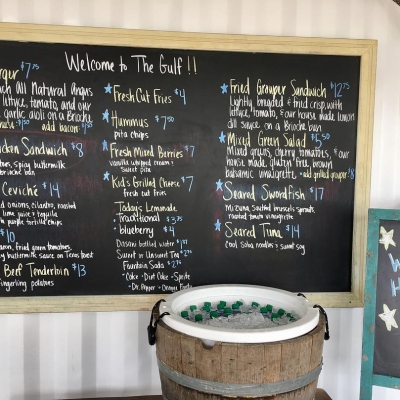 Welcome to The Gulf!!
rger $7.75
ch All Natural Angus
lettuce, tomato, and our
garlic aioli on a Brioche
add bacon
cken Sandwich $8
spicy buttermilk
brioche bun
Ceviché $14
onions, cilantro, roasted
lime juice & tequila
purple tortilla chips
$10
bacon, fried green tomatoes,
buttermilk sauce on Texas toast
Beef Tenderloin $13
fingerling potatoes
Fresh Cut Fries $4
Hummus $7.50
pita chips
Fresh Mixed Berries $7
vanilla whipped cream &
sweet pita
Kid's Grilled Cheese $7
fresh cut fries
Today's Lemonade
• Traditional $3.75
• blueberry $4
Dasani bottled water
Sweet or Unsweet Tea
Fountain Soda
• Coke • Diet Coke • Sprite
• Dr. Pepper • Orange Fanta
Fried Grouper Sandwich $12.75
Lightly breaded & fried crisp, with
lettuce, tomato, & our house made lemon
dill sauce on a Brioche Bun
Mixed Green Salad $5.50
Mixed greens, cherry tomatoes, & our
house made, gluten free, brown
balsamic vinaigrette - add grilled grouper $8
Seared Swordfish $17
Mizuna, sauteed brussels sprouts,
roasted tomato vinaigrette
Seared Tuna $14
Cool soba noodles & sweet soy